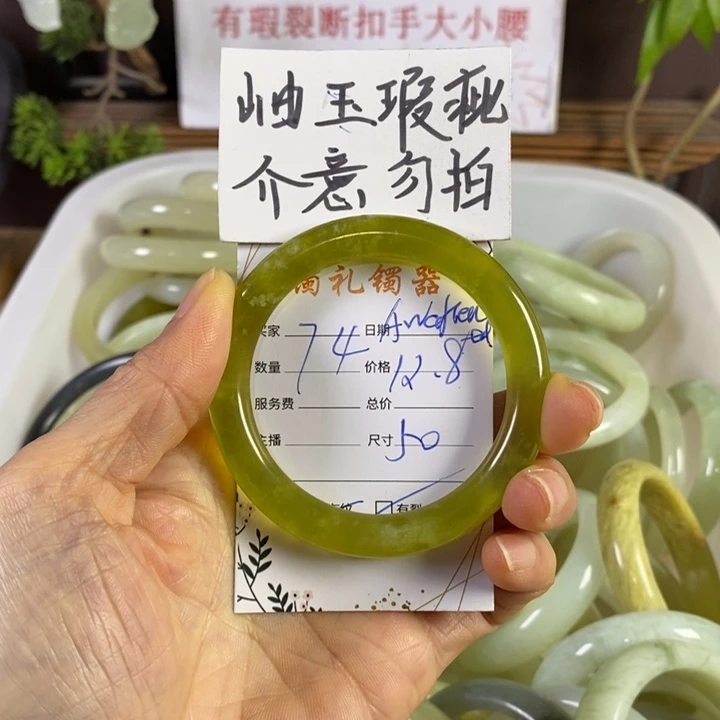 有瑕裂断扣手大小腰
岫玉瑕疵
介意勿拍
礼镯器
买家 74 日期
数量 价格 12.8
服务费 总价
主播 尺寸 50
有裂